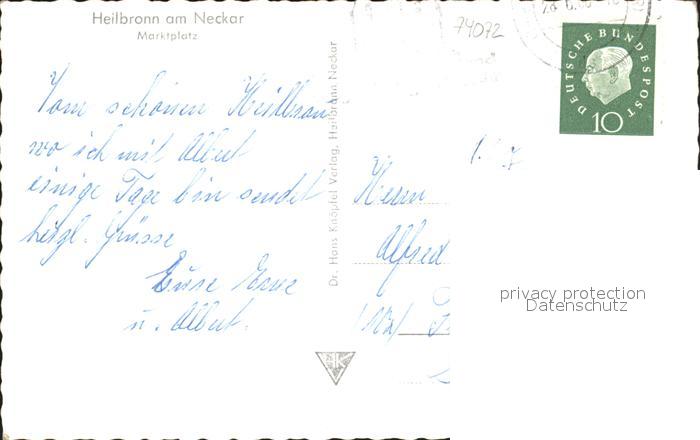 Heilbronn am Neckar
Marktplatz
74072
DEUTSCHE BUNDESPOST
10
Vom schönen Heilbronn
wo ich mit Albert
einige Tage bin sendet
herzl. Grüsse
Eure
u. Albert.
Dr. Hans Knöpfel Verlag, Heilbronn Neckar
Herrn
Alfred
privacy protection
Datenschutz